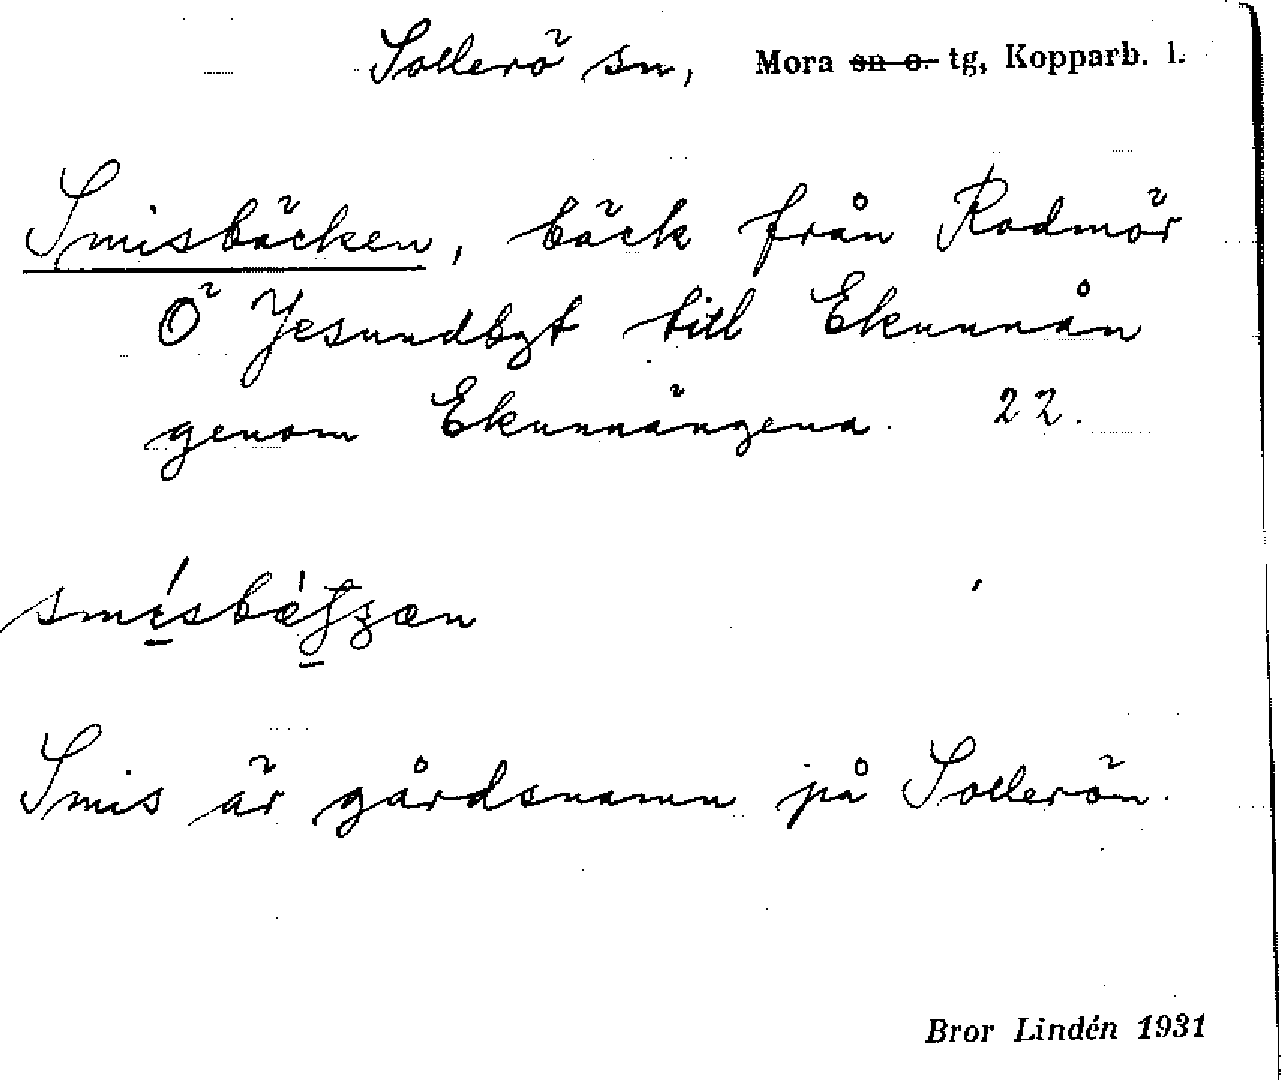 Sollerö sn, Mora sn o. tg, Kopparb. l.
Smisbäcken, bäck från Rodmör
Ö Gesundbgt till Ekunnån
genom Ekunnängena. 22.
Smis är gårdsnamn på Sollerön.
Bror Lindén 1931